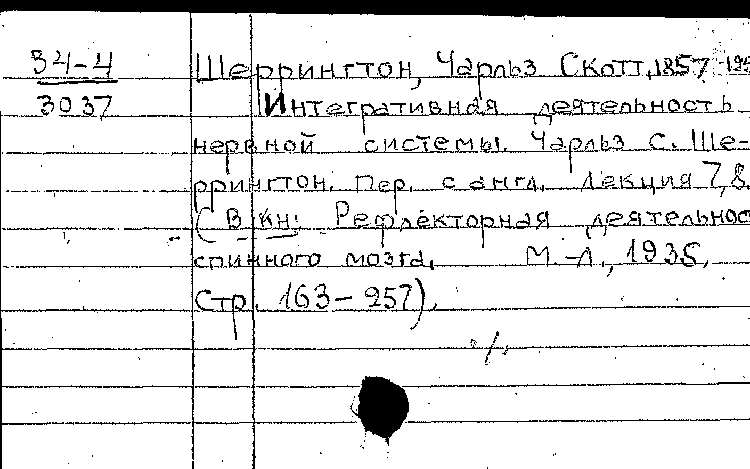 34-4
3037
Шеррингтон, Чарльз Скотт, 1857-195
Интегративная деятельность
нервной системы. Чарльз С. Ше-
ррингтон. Пер. с англ. Лекция 7,8.
(В кн: Рефлекторная деятельнос
спинного мозга. М.-Л., 1935.
Стр. 163-257).